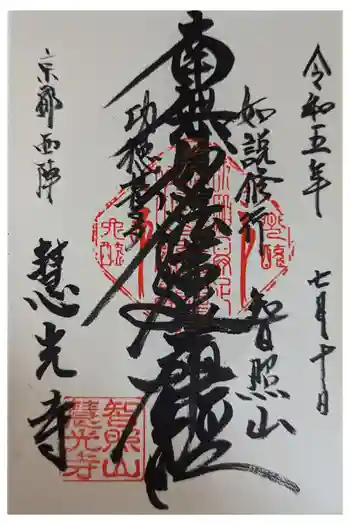 令和五年
七月十日
如説修行
智照山
南無妙法蓮華經
功徳甚多
京都 西陣
慧光寺
智照山
慧光寺